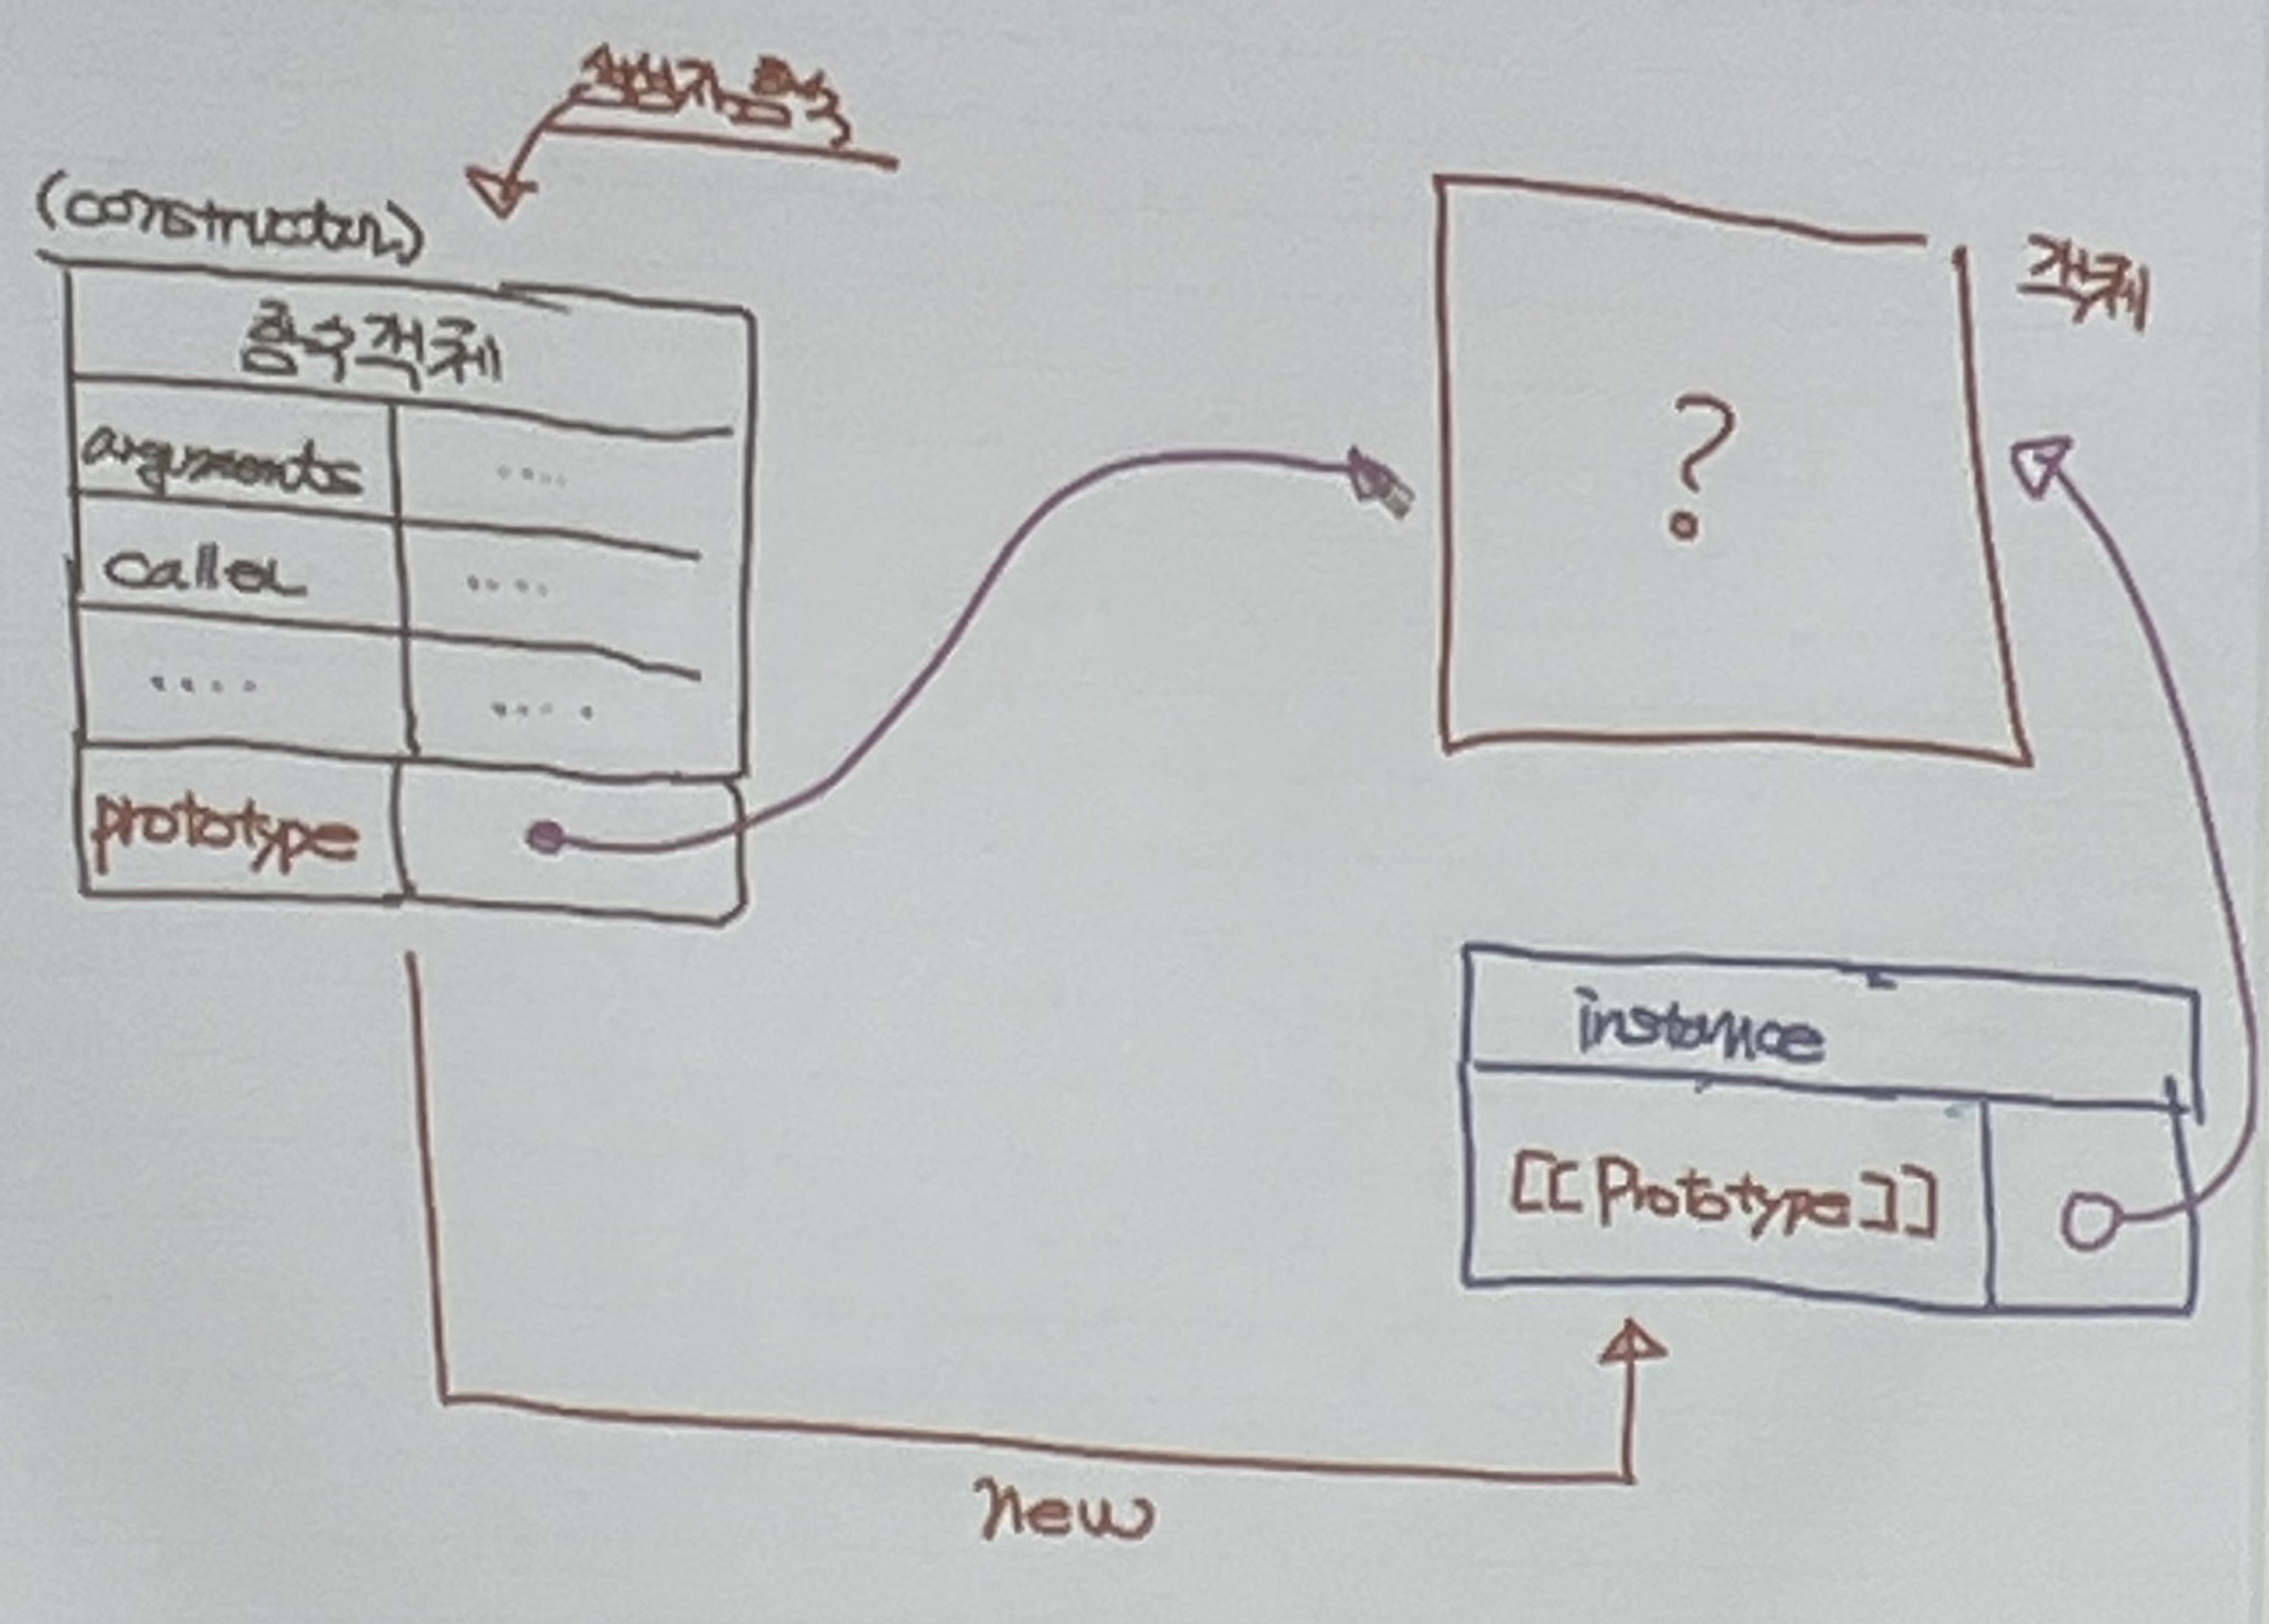 생성자 함수
(constructor)
함수 객체
arguments
....
caller
....
....
....
prototype
객체
?
instance
[[Prototype]]
new